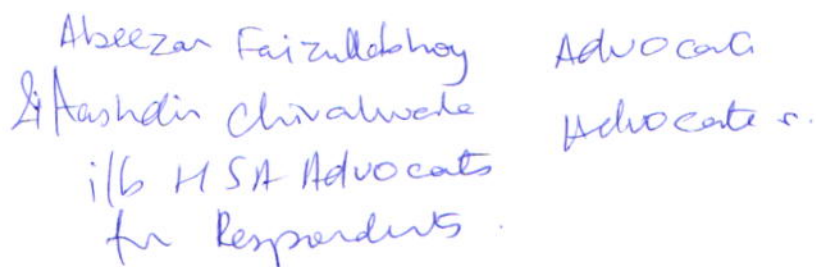 Abeezar Faizullabhoy Advocate
& Aashdin Chivalwala Advocate s.
i/b HSA Advocats
for Respondents.